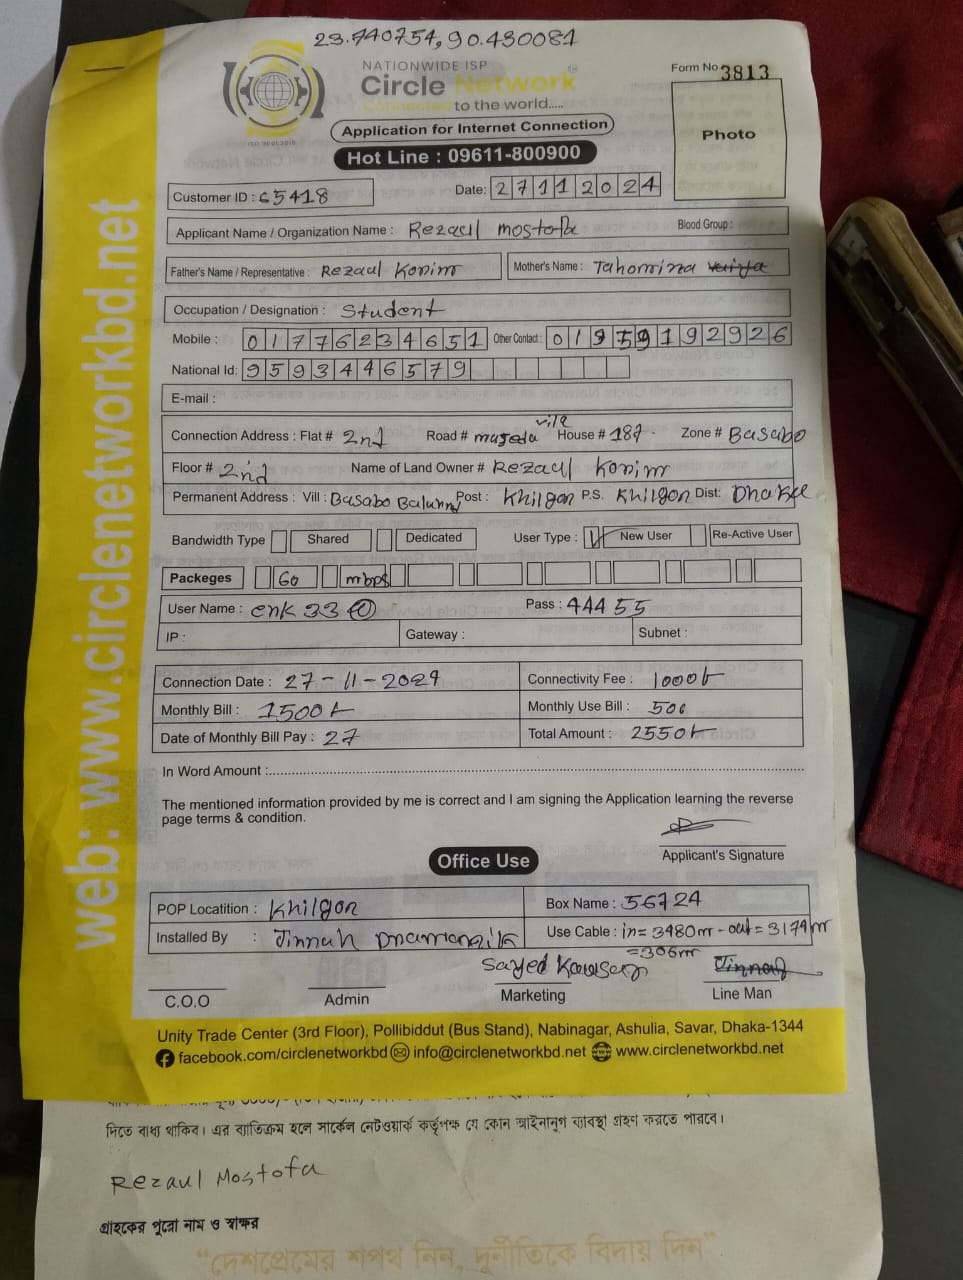 23.740754, 90.430081
NATIONWIDE ISP
Circle Network
Connected to the world.....
ISO 9001:2015
Form No 3813
Application for Internet Connection
Photo
Hot Line : 09611-800900
Customer ID : 65418
Date: 27112024
Applicant Name / Organization Name : Rezaul mostofa
Blood Group :
Father's Name / Representative : Rezaul Korim
Mother's Name : Tahomina
Occupation / Designation : Student
Mobile : 01776234651 Other Contact : 01959192926
National Id: 9593446579
E-mail :
Connection Address : Flat # 2nd Road # majeda vila House # 187 Zone # Basabo
Floor # 2nd Name of Land Owner # Rezaul Korim
Permanent Address : Vill : Basabo Post : Khilgon P.S. Khilgon Dist: Dhaka
Bandwidth Type Shared Dedicated User Type : New User Re-Active User
Packeges 60 mbps
User Name : enk 33 Pass : 44455
IP : Gateway : Subnet :
Connection Date : 27-11-2024 Connectivity Fee : 1000৳
Monthly Bill : 1500৳ Monthly Use Bill : 500
Date of Monthly Bill Pay : 27 Total Amount : 2550৳
In Word Amount :
The mentioned information provided by me is correct and I am signing the Application learning the reverse
page terms & condition.
Applicant's Signature
Office Use
POP Locatition : Khilgon Box Name : 56724
Installed By : Jinnah Use Cable : in= 3480m - out= 3174m
=306m
Sayed Kawsar Jinnah
C.O.O Admin Marketing Line Man
Unity Trade Center (3rd Floor), Pollibiddut (Bus Stand), Nabinagar, Ashulia, Savar, Dhaka-1344
facebook.com/circlenetworkbd info@circlenetworkbd.net www.circlenetworkbd.net
web: www.circlenetworkbd.net
দিতে বাধ্য থাকিব। এর ব্যতিক্রম হলে সার্কেল নেটওয়ার্ক কর্তৃপক্ষ যে কোন আইনানুগ ব্যবস্থা গ্রহণ করতে পারবে।
Rezaul Mostofa
গ্রাহকের পুরো নাম ও স্বাক্ষর
"দেশপ্রেমের শপথ নিন, দুর্নীতিকে বিদায় দিন"